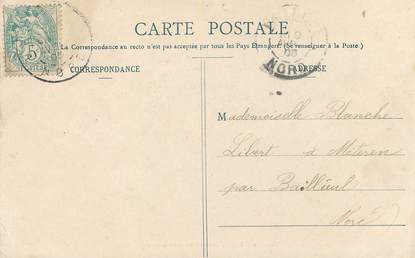 CARTE POSTALE
La Correspondance au recto n'est pas acceptée par tous les Pays Étrangers. (Se renseigner à la Poste.)
CORRESPONDANCE
ADRESSE
5
NORD
Mademoiselle Blanche
Libert à Méteren
par Bailleul
Nord